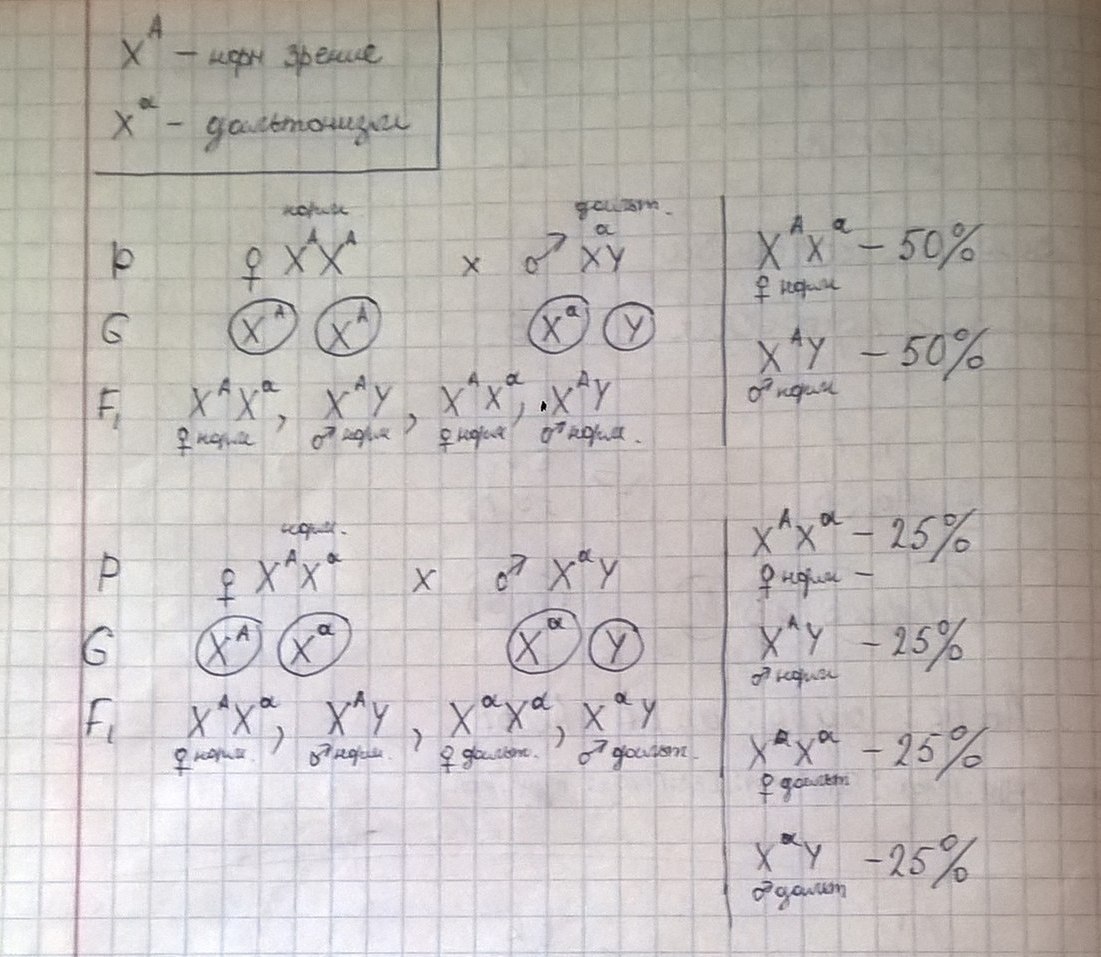 X^A – норм зрение
X^a – дальтонизм
норм дальт.
P ♀ X^A X^A x ♂ X^a Y
G X^A X^A X^a Y
F₁ X^A X^a, X^A Y, X^A X^a, X^A Y
♀ норм ♂ норм ♀ норм ♂ норм.
X^A X^a – 50%
♀ норм
X^A Y – 50%
♂ норм
норм.
P ♀ X^A X^a x ♂ X^a Y
G X^A X^a X^a Y
F₁ X^A X^a, X^A Y, X^a X^a, X^a Y
♀ норм. ♂ норм. ♀ дальт. ♂ дальт.
X^A X^a – 25%
♀ норм –
X^A Y – 25%
♂ норм
X^a X^a – 25%
♀ дальт
X^a Y – 25%
♂ дальт